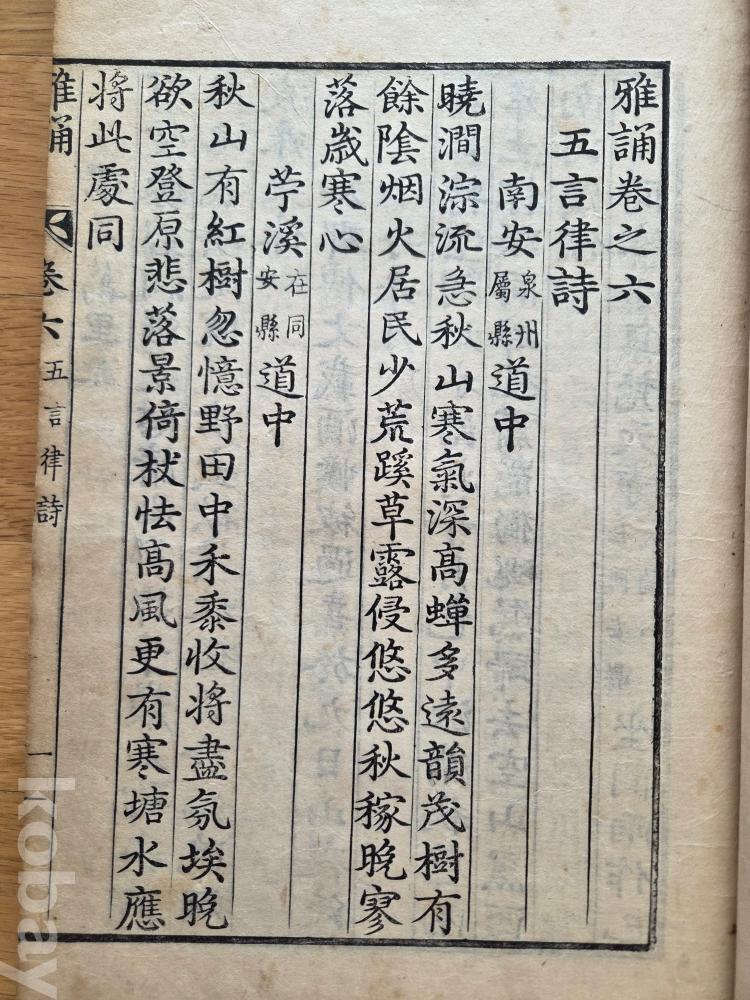 雅誦卷之六
五言律詩
南安泉州屬縣道中
曉澗淙流急秋山寒氣深高蟬多遠韻茂樹有
餘陰烟火居民少荒蹊草露侵悠悠秋稼晚寥
落歲寒心
苧溪在同安縣道中
秋山有紅樹忽憶野田中禾黍收將盡氛埃晚
欲空登原悲落景倚杖怯高風更有寒塘水應
將此處同
雅誦 卷六 五言律詩 一
kobay